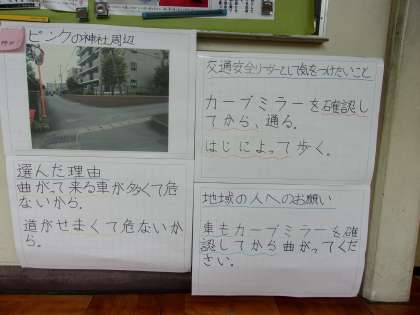 ピンクの神社周辺
選んだ理由
曲がって来る車が多くて危
ないから。
道がせまくて危ないか
ら。
交通安全リーダーとして気をつけたいこと
カーブミラーを確認し
てから、通る。
はじによって歩く。
地域の人へのお願い
車もカーブミラーを確
認してから曲がってくだ
さい。